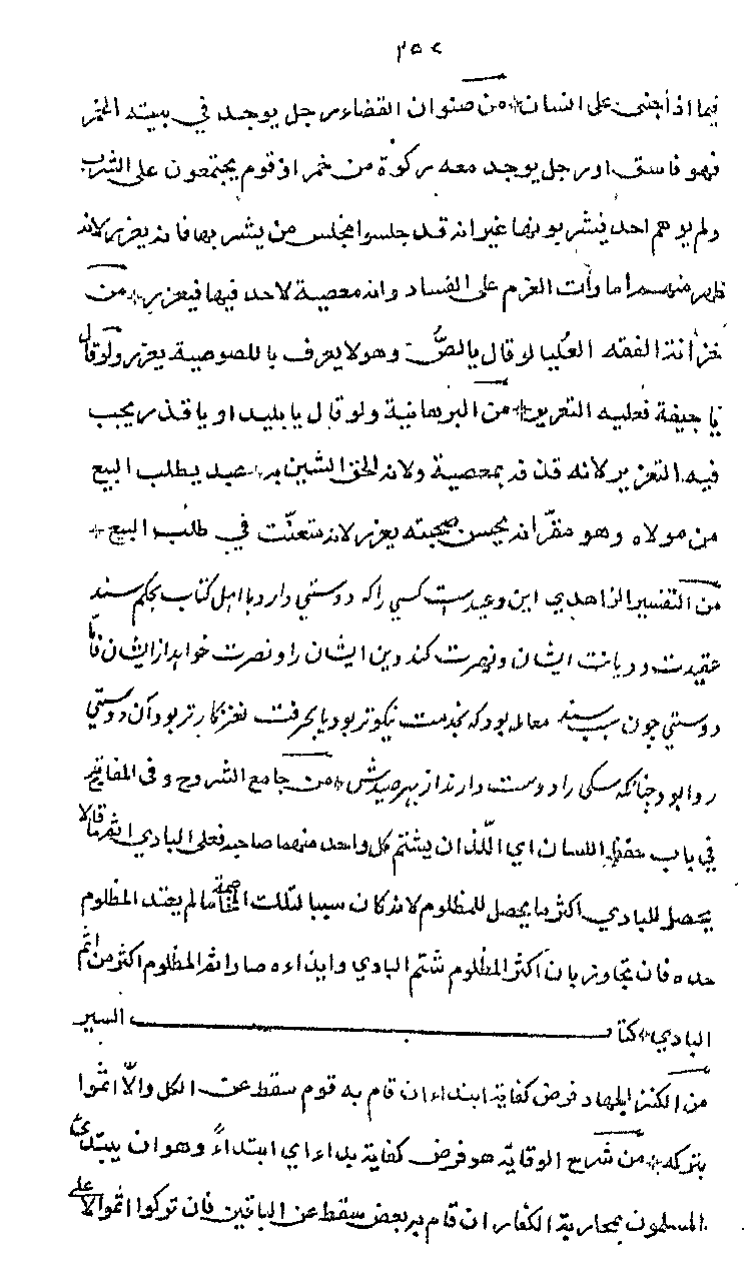 ٣٥٤
فيما اذا جنى على انسان * من صنوان القضاء رجل يوجد في بيته الخمر
فهو فاسق او رجل يوجد معه ركوة من خمر او قوم يجتمعون على الشرب
ولم يوهم احد يشربونها غير انه قد جلسوا مجلس من يشربها فانه يعزر لانه
ظهر منهم امارات العزم على الفساد وانه معصية لا حد فيها فيعزر * من
خزانة الفقه العليا لو قال يا لصّ وهو لا يعرف باللصوصية يعزر ولو قال
يا جيفة فعليه التعزير * من البرهانية ولو قال يا بليد او يا قذر يجب
فيه التعزير لانه قذفه بمعصية ولانه الحق الشين به * عبد يطلب البيع
من مولاه وهو مقرّ انه يحسن صحبته يعزر لانه متعنّت في طلب البيع *
من التفسير الزاهدي اين وعيد است كسي را كه دوستي دارد با اهل كتاب بحكم سند
عقيدت و ديانت ايشان ونصرت كند دين ايشان را ونصرت خواهد از ايشان فامّا
دوستي چون بسبب معامله بود كه بخدمت نيكوتر بود يا بحرفت نغز كارتر بود آن دوستي
روا بود چنانكه سگى را دوست دارند از بهر صيدش * من جامع الشروح وفى المفاتيح
في باب حفظ اللسان اي اللّذان يشتم كل واحد منهما صاحبه فعلى البادي اثم ما قالا
يحصل للبادي اكثر مما يحصل للمظلوم لانه كان سببا لتلك المخاصمة ما لم يعتد المظلوم
حده فان تجاوز بان اكثر المظلوم شتم البادي وايذاءه صار اثم المظلوم اكثر من اثم
البادي * كتاب السير
من الكنز الجهاد فرض كفاية ابتداء ان قام به قوم سقط عن الكل والّا اثموا
بتركه * من شرح الوقاية هو فرض كفاية بداء اي ابتداءً وهو ان يبتدئ
المسلمون بمحاربة الكفار ان قام به بعض سقط عن الباقين فان تركوا اثموا لا على